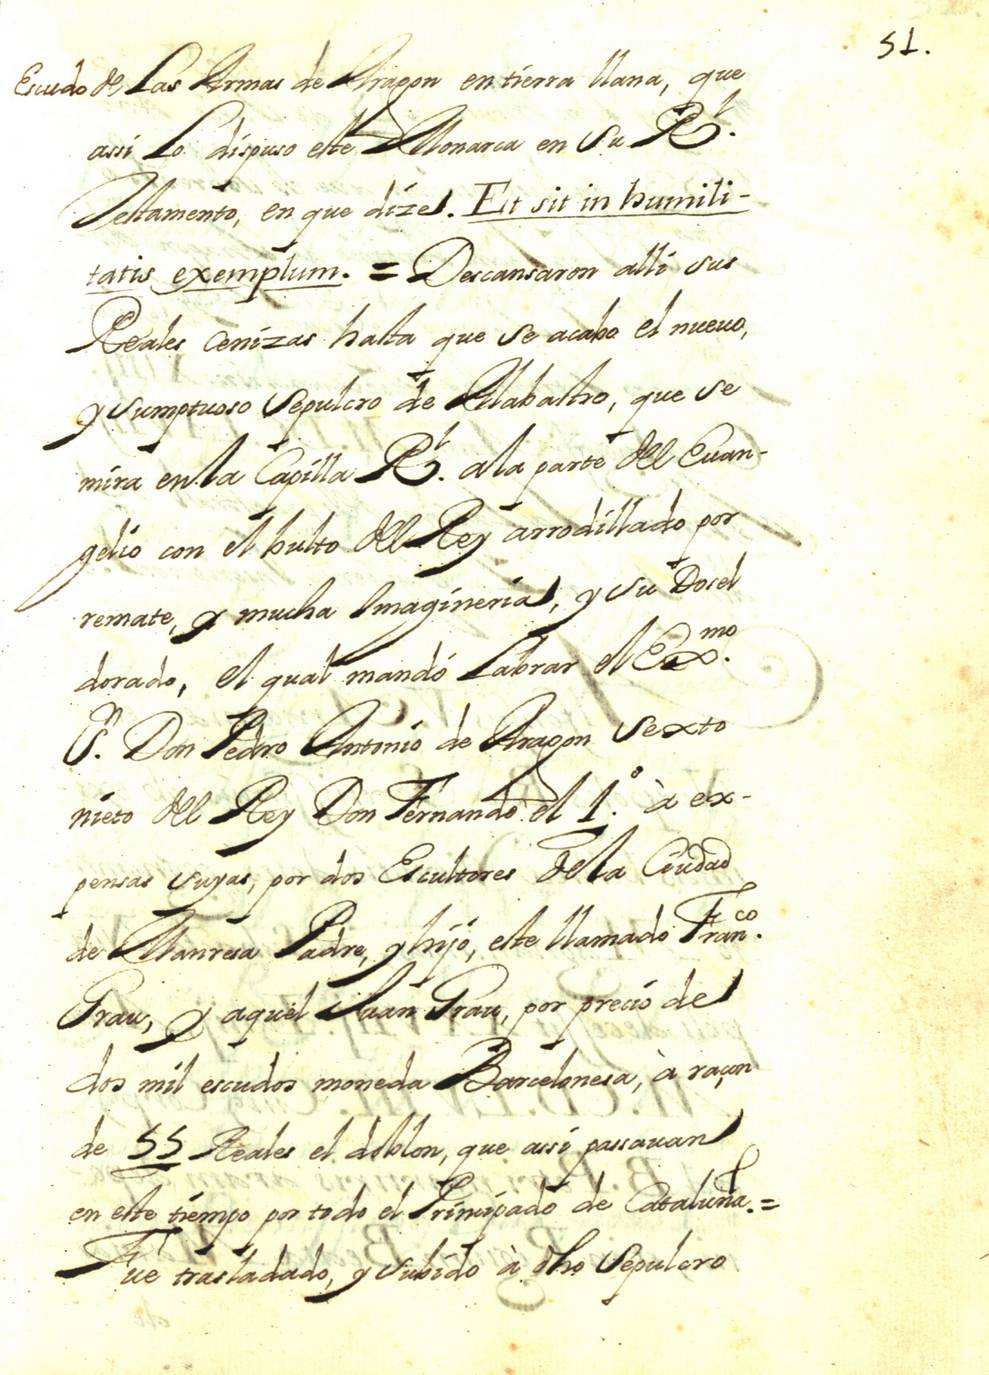 51.
Escudo de las Armas de Aragon en tierra llana, que
assi Lo dispuso este Monarca en Su Rl.
Testamento, en que dize. Et sit in humili-
tatis exemplum. = Descansaron alli sus
Reales cenizas hasta que se acabo el nueuo,
y sumptuoso sepulcro de Alabastro, que se
mira en la Capilla Rl. a la parte del Euan-
gelio con el bulto del Rey arrodillado por
remate, y mucha Imagineria, y su Dosel
dorado, el qual mandó Labrar el Exmo.
Sn. Don Pedro Antonio de Aragon Sexto
nieto del Rey Don Fernando el 1.º à ex-
pensas suyas, por dos Escultores de la Ciudad
de Manresa Padre, y hijo, este llamado Franco.
Grau, y aquel Juan Grau, por precio de
dos mil escudos moneda Barcelonesa, à raçon
de 55 Reales el doblon, que assi passauan
en este tiempo por todo el Principado de Cataluña. =
Fue trasladado, y subido à dho Sepulcro